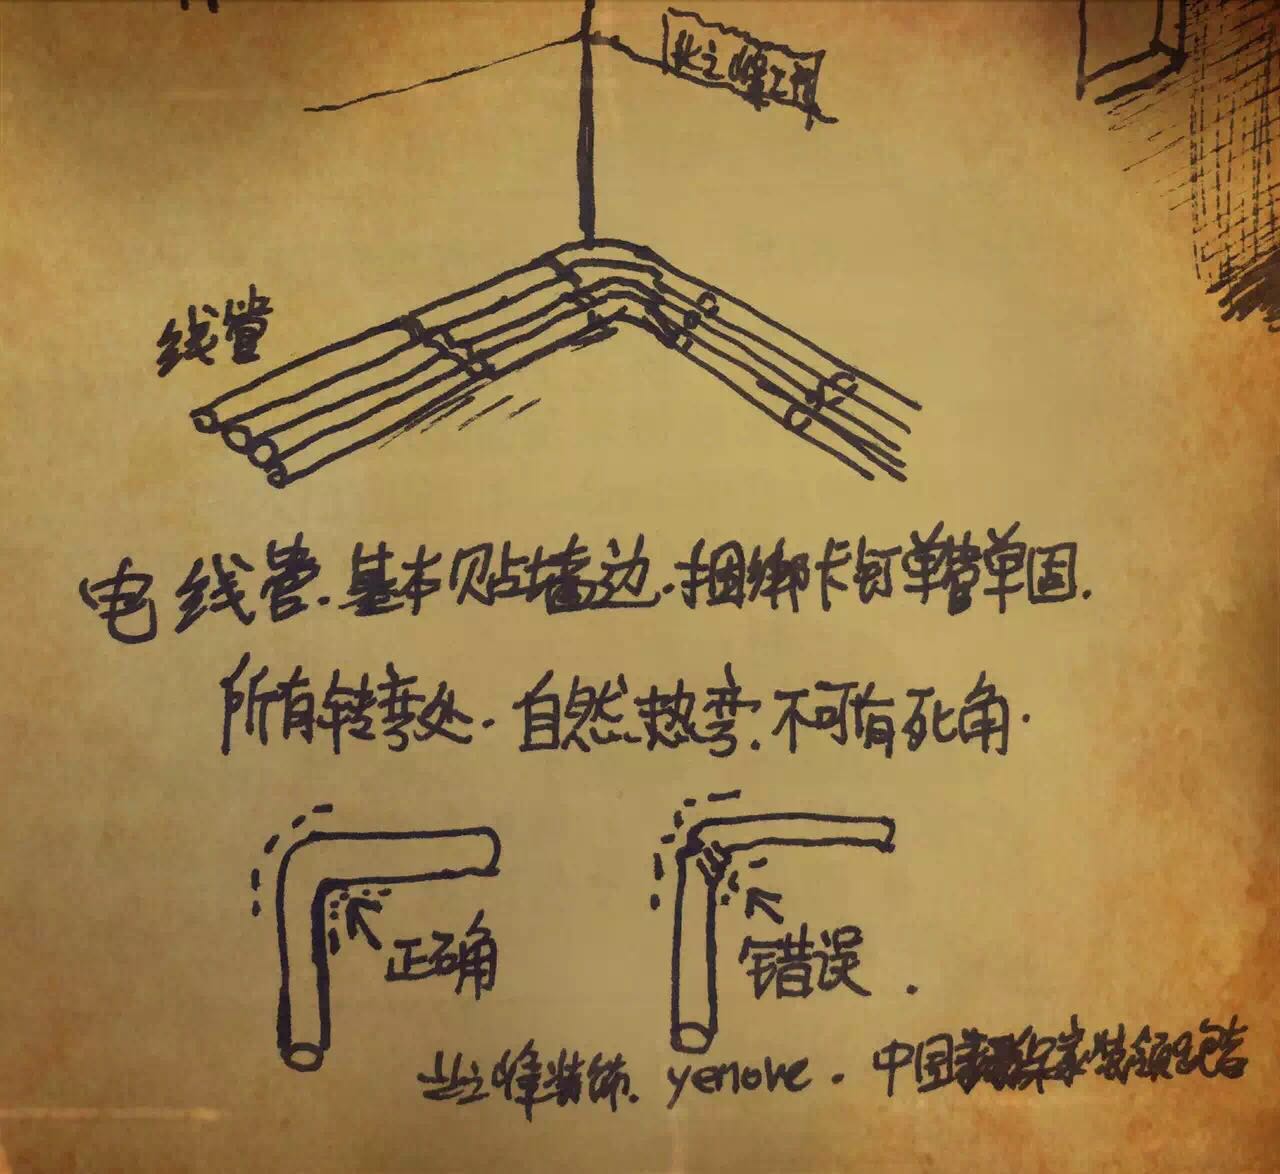 业之峰工程
线管
电线管.基本贴墙边.捆绑卡钉单管单固.
所有转弯处.自然热弯.不可有死角.
正确
错误.
业之峰装饰. yenove. 中国环保家装领跑者